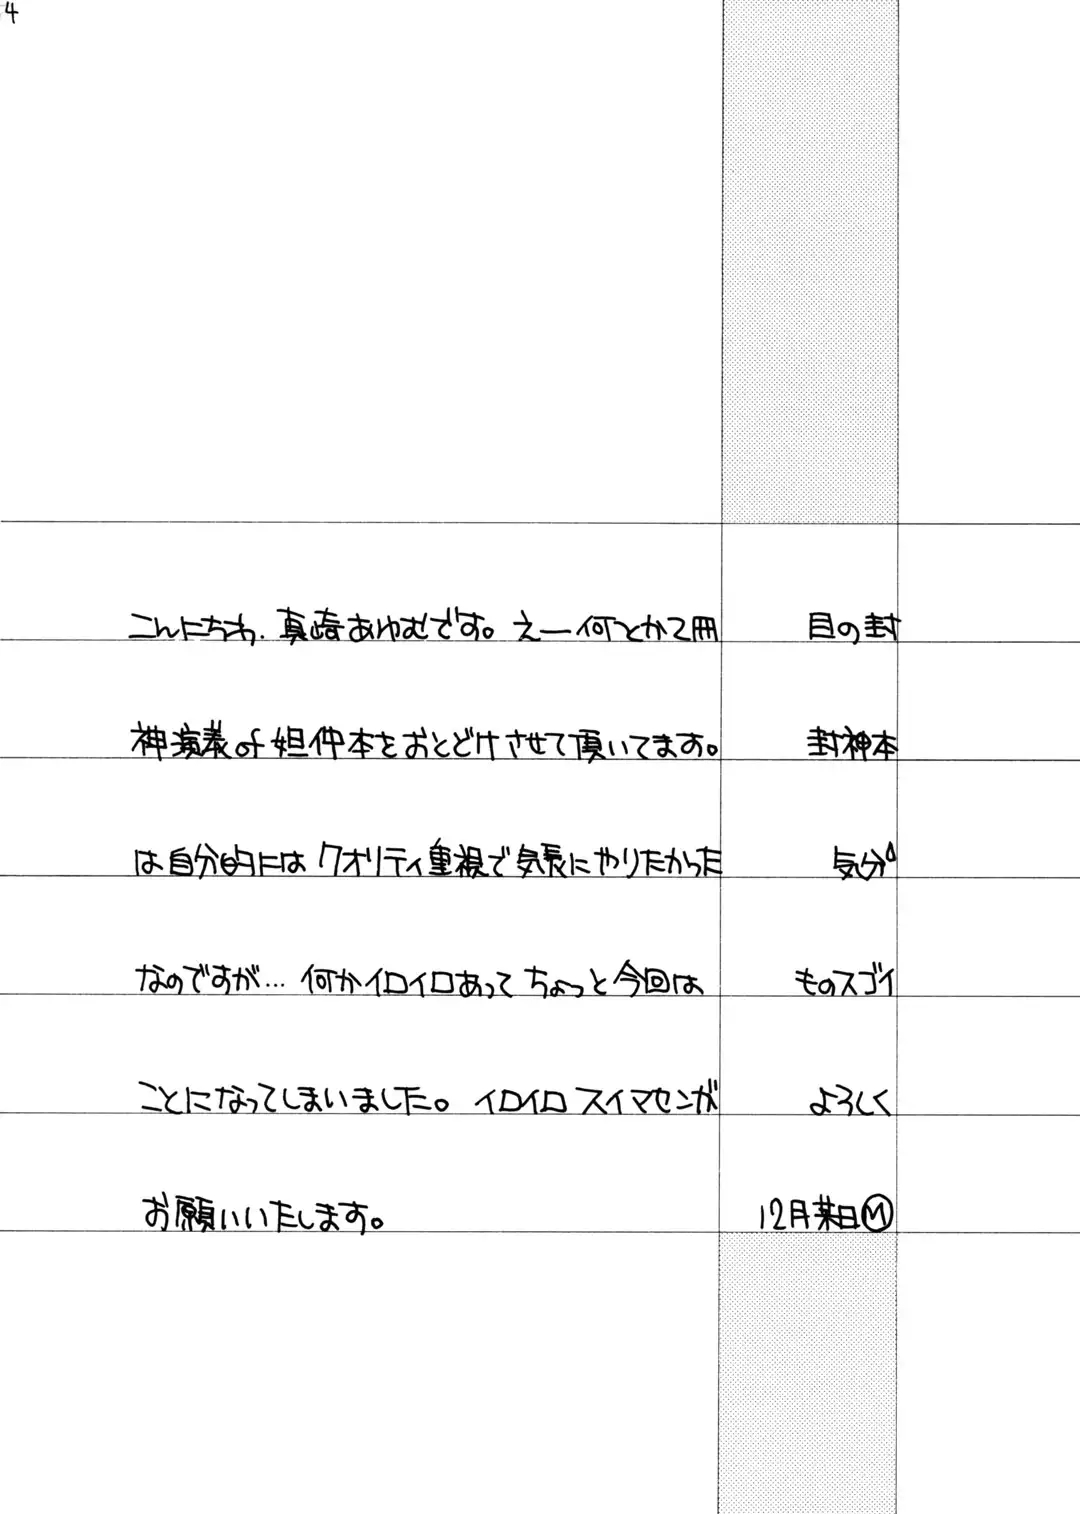 4
こんにちわ、真崎あゆむです。えー何とか2冊目の封
神演義of妲仲本をおとどけさせて頂いてます。封神本
は自分的にはクオリティ重視で気長にやりたかった気分
なのですが…何かイロイロあってちょっと今回はものスゴイ
ことになってしまいました。イロイロスイマセンがよろしく
お願いいたします。 12月某日Ⓜ